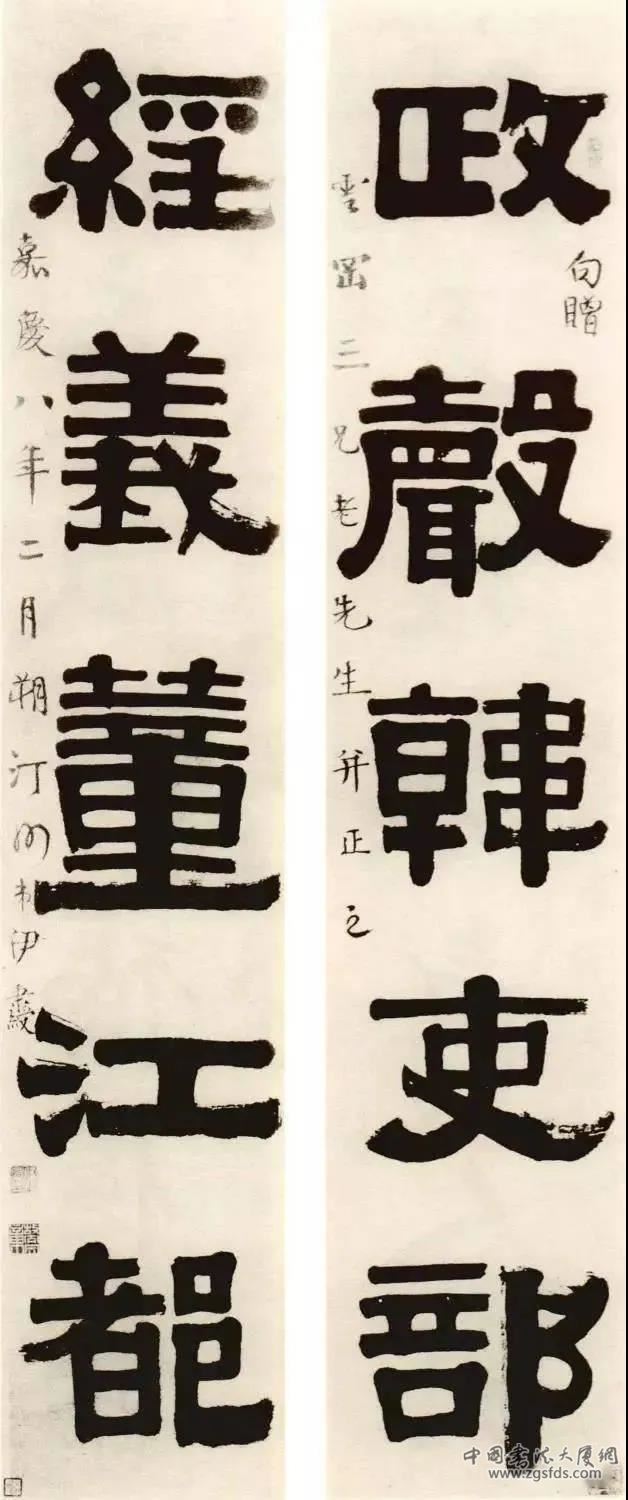 政聲韓吏部
句贈
雲罍三兄老先生并正之
經義董江都
嘉慶八年二月朔汀州弟伊秉綬
中國書法大廈網
www.zgsfds.com